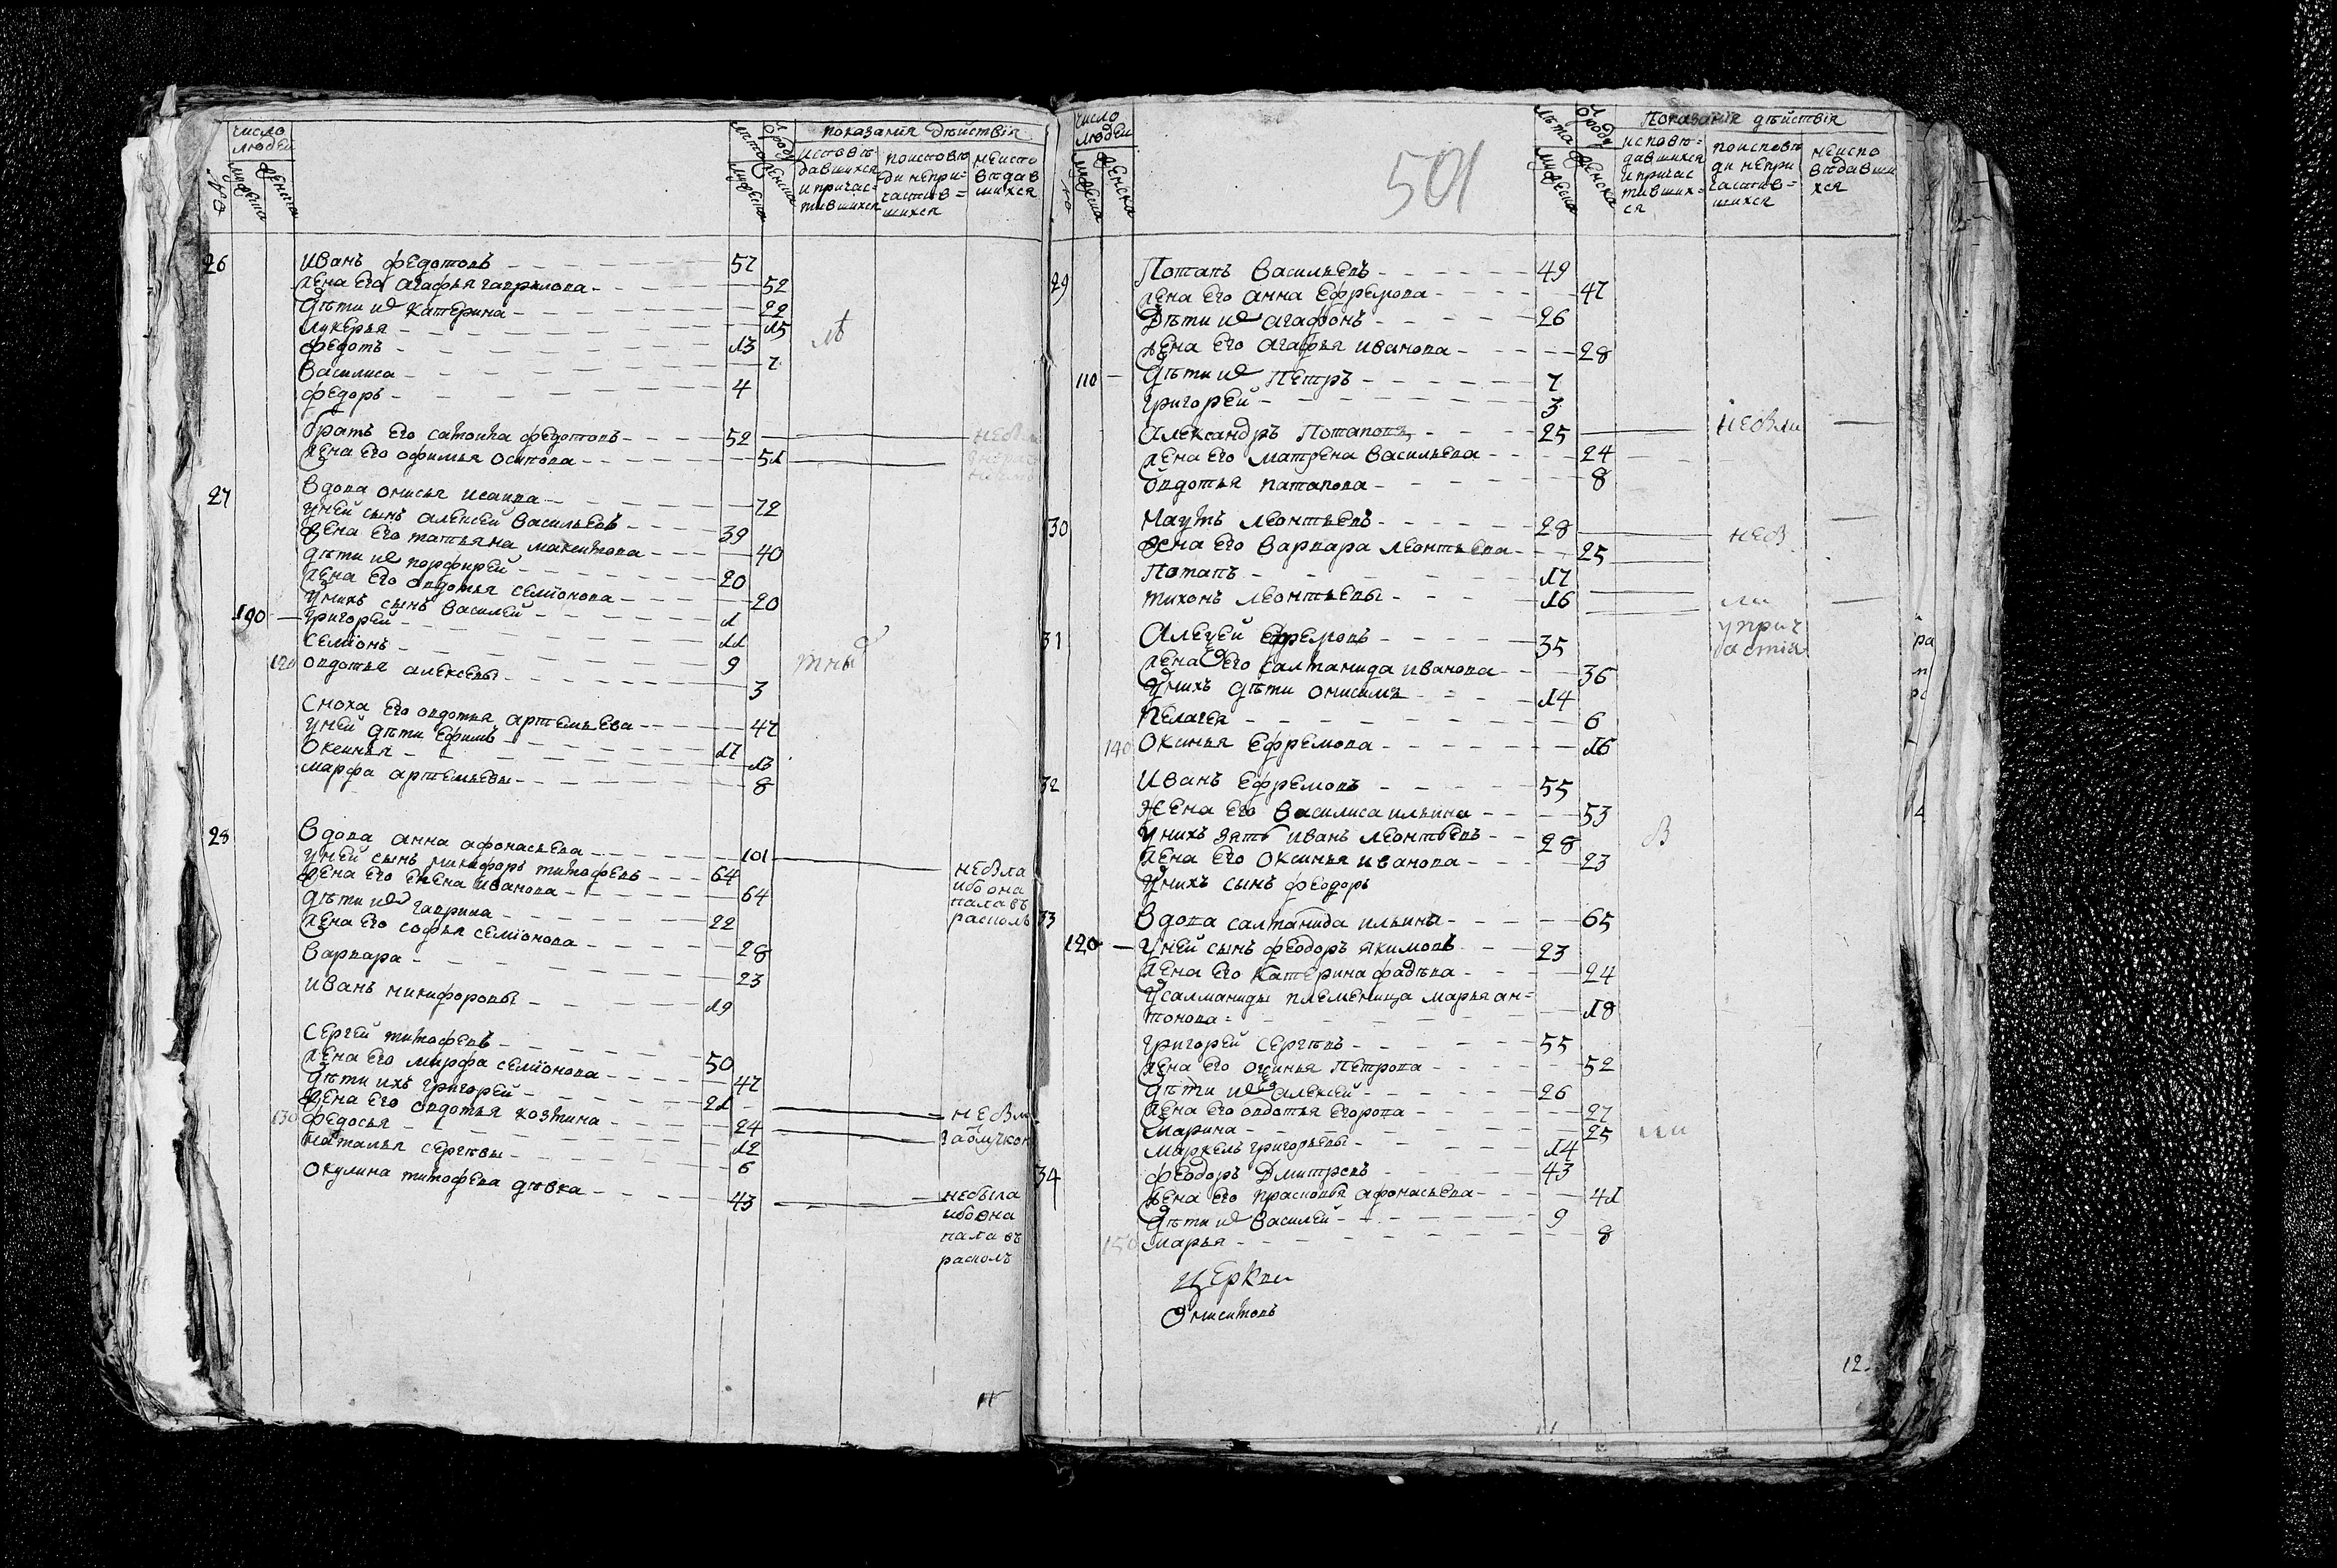 число людей
№
мужеска
женска
лѣта
мужеска
женска
показанія дѣйствія
исповѣ-
давшихся
и причас-
тившихся
поисповѣ
ди непри-
частив-
шихся
неиспо
вѣдав
шихся
26 Иванъ федотовъ 57
жена его агафья гаврилова 52
дѣти их катерина 22
лукерья 15
федотъ 13
василиса 7
федоръ 4
братъ его федотовъ 52
жена его офимья осипова 51
27 вдова онисья исаива 72
уней сынъ алексей васильевъ 39
жена его татьяна максимова 40
дѣти их порфирей 20
жена его овдотья семіонова 20
унихъ сынъ василей 1
190 григорей 11
семіонъ 9
120 овдотья алексевы 3
сноха его овдотья артемьева 47
уней дѣти ефимъ 17
оксинья 13
марфа артемьевы 8
28 вдова анна афонасьева 101
уней сынъ никифоръ тимофевъ 64
жена его елена иванова 64
дѣти их гаврила 22
жена его софья семіонова 28
варвара 23
иванъ никифоровы 19
сергей тимофевъ 50
жена его марфа семіонова 47
дѣти ихъ григорей 21
жена его овдотья козмина 24
130 федосья 12
наталья сергѣвы 6
окулина тимофева дѣвка 43
небыла
ибо она
пала въ
расколъ
небыла
ибо она
пала въ
расколъ
501
число людей
мужеска
женска
лѣта
мужеска
женска
Показанія дѣйствія
исповѣ-
давшихся
и причас
тивших-
ся
поисповѣ
ди непри
частив-
шихся
неиспо
вѣдавши
хся
29 Потапъ васильевъ 49
жена его анна ефремова 47
Дѣти их агафонъ 26
жена его агафья иванова 28
110 дѣти их петръ 7
григорей 3
Александръ Потаповъ 25 небыли
жена его матрена васильева 24
овдотья патапова 8
30 Наумъ леонтьевъ 28
жена его варвара леонтьева 25
Потапъ 17
тихонъ леонтьевы 16
31 Алексей ефремовъ 35
жена его салманида иванова 36
унихъ дѣти онисимъ 14
пелагея 6
140 Оксинья ефремова 16
у прич
астія
32 Иванъ ефремовъ 55
жена его василиса ильина 53
унихъ зять иванъ леонтьевъ 28
жена его оксинья иванова 23
унихъ сынъ феодоръ
33 вдова салманида ильина 65
120 уней сынъ феодоръ якимовъ 23
жена его катерина фадѣва 24
усалманиды племеница марья ан-
тонова 18
григорей сергѣвъ 55
жена его оксинья петрова 52
дѣти их алексей 26
жена его овдотья егорова 27
марина 25
маркелъ григорьевы 14
34 феодоръ дмитревъ 43
жена его прасковья афонасьева 41
дѣти их василей 9
150 марья 8
церкви
12